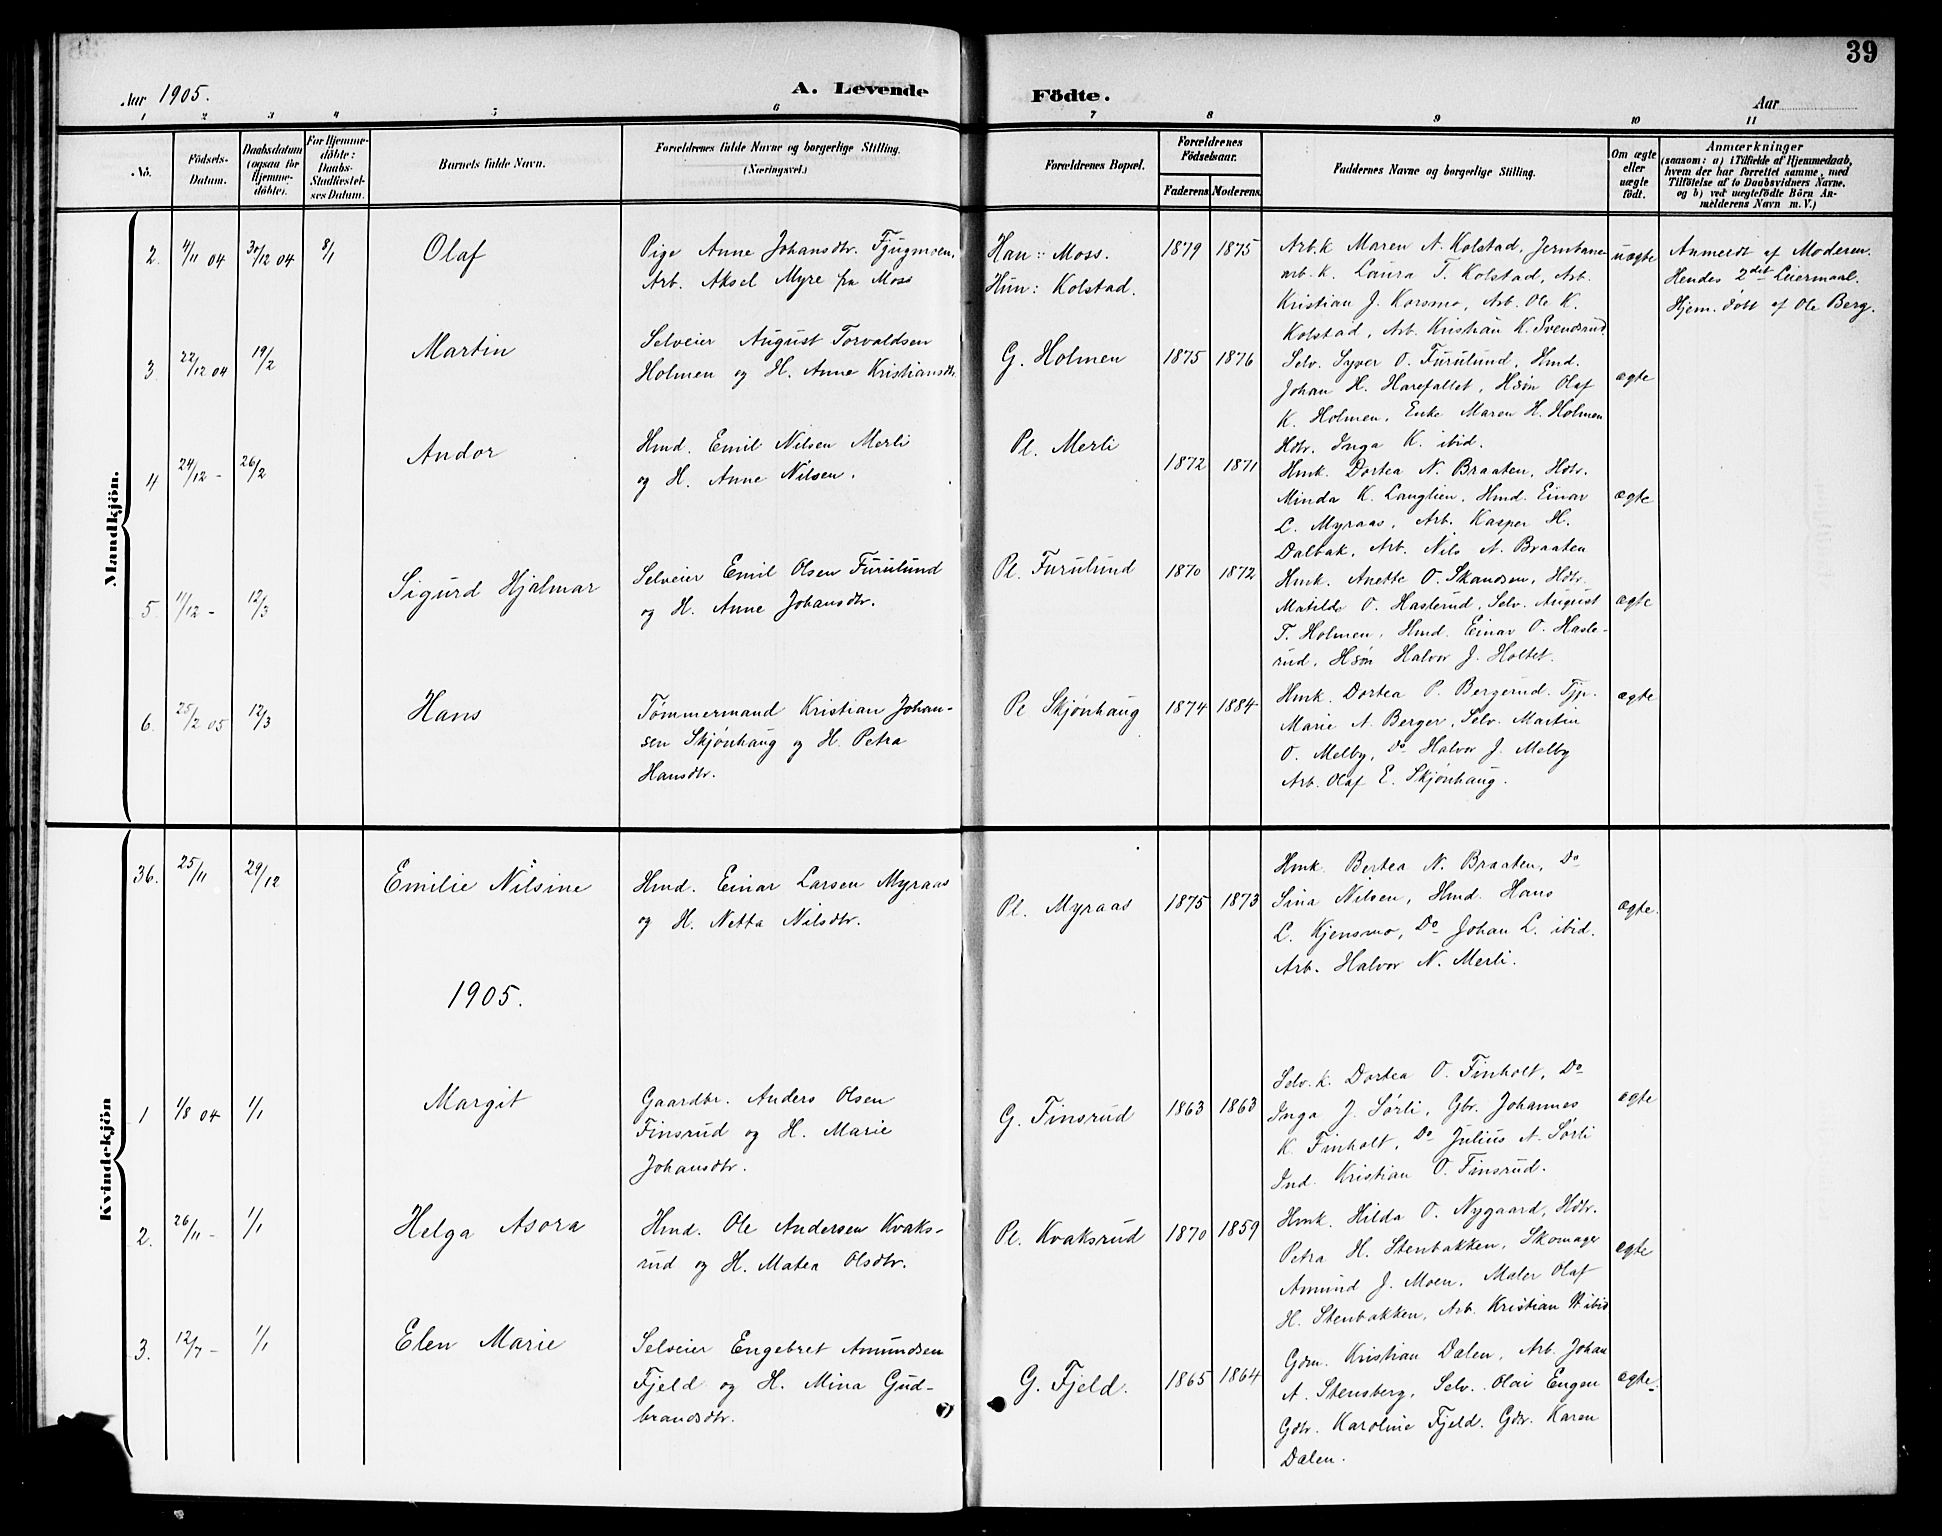 39
Aar 1905.
A. Levende Födte.
Aar
1 2 3 4 5 6 7 8 9 10 11
No.
Födsels-
Datum.
Daabsdatum
(ogsaa for
Hjemme-
döbte).
For Hjemme-
döbte:
Daabs-
Stadfæstel-
ses Datum.
Barnets fulde Navn.
Forældrenes fulde Navne og borgerlige Stilling.
(Næringsvei.)
Forældrenes Bopæl.
Forældrenes
Födselsaar.
Faderens
Moderens.
Faddernes Navne og borgerlige Stilling.
Om ægte
eller
uægte
født.
Anmærkninger
(saasom: a) i Tilfælde af Hjemmedaab,
hvem der har forrettet samme, med
Tilføielse af to Daabsvidners Navne.
og b) ved uægtefødte Börn An-
melderens Navn m. V.)
Mandkjön.
2. 4/11 04 30/12 04 8/1 Olaf
Pige Anne Johansdtr. Fjugmoen,
Arb. Aksel Myre fra Moss
Han: Moss.
Hun: Kolstad.
1879 1875
Arb.k Maren A. Kolstad, Jernbane-
arb. k. Laura T. Kolstad, Arb.
Kristian J. Korsmo, Arb. Ole K.
Kolstad, Arb. Kristian K. Svendsrud
uægte
Anmeldt af Moderen.
Hendes 2det Leiermaal.
Hjem. døbt af Ole Berg.
3. 22/12 04 19/2 Martin
Selveier August Torvaldsen
Holmen og H. Anne Kristiansdtr.
G. Holmen 1875 1876
Selv. Syver O. Furulund, Hmd.
Johan H. Harefallet, Hsøn Olaf
K. Holmen, Enke Maren H. Holmen
Hdtr. Inga K. ibid.
ægte
4 24/12 - 26/2 Andor
Hmd. Emil Nilsen Merli
og H. Anne Nilsen.
Pl. Merli 1872 1871
Hmk. Dortea N. Braaten, Hdtr.
Minda K. Langlien, Hmd. Einar
L. Myraas, Arb. Kasper H.
Dalbak, Arb. Nils A. Braaten
ægte
5. 11/12 - 12/3 Sigurd Hjalmar
Selveier Emil Olsen Furulund
og H. Anne Johansdtr.
Pl. Furulund 1870 1872
Hmk. Anette O. Skansen, Hdtr.
Matilde O. Haslerud, Selv. August
T. Holmen, Hmd. Einar O. Hasle-
rud, Hsøn Halvor J. Holtet.
ægte
6. 25/2 05 12/3 Hans
Tømmermand Kristian Johan-
sen Skjønhaug og H. Petra
Hansdtr.
Pl Skjønhaug 1874 1884
Hmk. Dortea P. Bergerud, Tjp.
Marie A. Berger, Selv. Martin
O. Melby, Do Halvor J. Melby
Arb. Olaf E. Skjønhaug.
ægte
Kvindekjön
36. 25/11 29/12 Emilie Nilsine
Hmd. Einar Larsen Myraas
og H. Netta Nilsdtr.
Pl. Myraas 1875 1873
Hmk. Bertea N. Braaten, Do
Sina Nilsen, Hmd. Hans
L. Kjensmo, Do Johan L. ibid.
Arb. Halvor N. Merli.
ægte.
1905.
1 1/8 04 1/1 Margit
Gaardbr. Anders Olsen
Finsrud og H. Marie
Johansdtr.
G. Finsrud 1863 1863
Selv. k. Dortea O. Finholt, Do
Inga J. Sørli, Gbr. Johannes
K. Finholt, Do Julius A. Sørli
Ind. Kristian O. Finsrud.
ægte
2. 26/11 - 1/1 Helga Asora
Hmd. Ole Andersen Kvaks-
rud og H. Matea Olsdtr.
Pl. Kvaksrud 1870 1859
Hmk. Hilda O. Nygaard, Hdtr.
Petra H. Stenbakken, Skomager
Amund J. Moen, Maler Olaf
H. Stenbakken, Arb. Kristian H ibid
ægte
3. 12/7 - 1/1 Elen Marie
Selveier Engebret Amundsen
Fjeld og H. Mina Gud-
brandsdtr.
G. Fjeld. 1865 1864
Gdm. Kristian Dalen, Arb. Johan
A. Stensberg, Selv. Olai Engen
Gdtr. Karoline Fjeld. Gdtr. Karen
Dalen.
ægte.